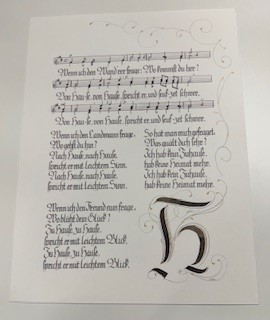 Wenn ich den Wand'rer frage: Wo kommst du her?
Von Hau-se, von Hause, spricht er, und seuf-zet schwer.
Von Hau-se, von Hause, spricht er, und seuf-zet schwer.
Wenn ich den Landmann frage,
Wo gehst du hin?
Nach Hause, nach Hause,
spricht er mit leichtem Sinn.
Nach Hause, nach Hause,
spricht er mit leichtem Sinn.
Wenn ich den Freund nun frage,
Wo blüht dein Glück?
Zu Hause, zu Hause,
spricht er mit leichtem Blick.
Zu Hause, zu Hause,
spricht er mit leichtem Blick.
So hat man mich gefraget,
Was quält dich sehr?
Ich hab kein Zuhause,
hab keine Heimat mehr.
Ich hab kein Zuhause,
hab keine Heimat mehr.
H